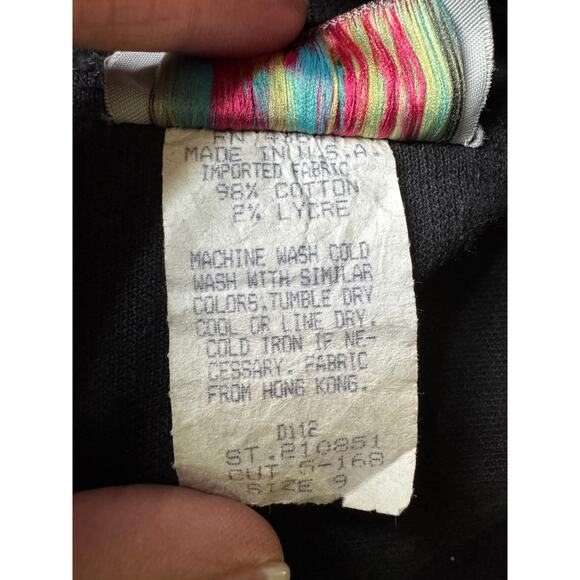 MADE IN U.S.A.
IMPORTED FABRIC
98% COTTON
2% LYCRE
MACHINE WASH COLD
WASH WITH SIMILAR
COLORS.TUMBLE DRY
COOL OR LINE DRY.
COLD IRON IF NE-
CESSARY. FABRIC
FROM HONG KONG.
D112
ST.210851
CUT 5-168
SIZE 9